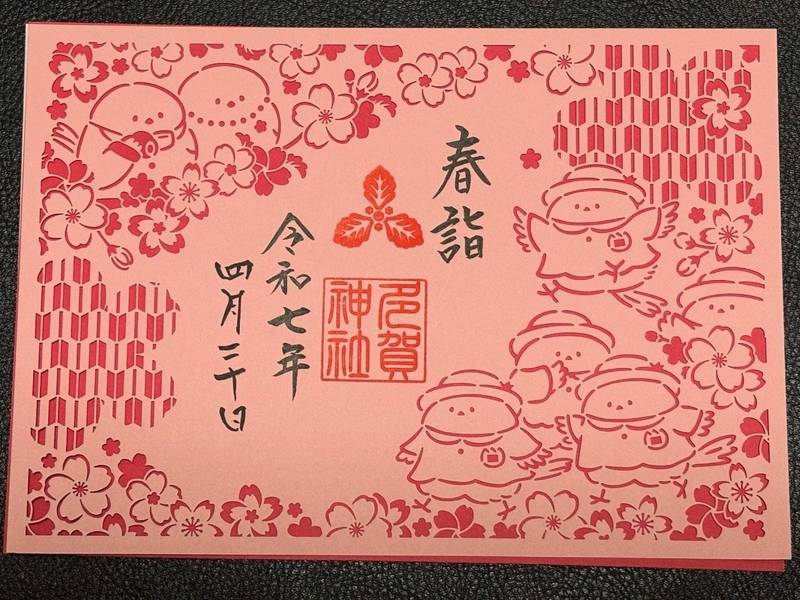 春詣
多賀
神社
令和七年
四月三十日